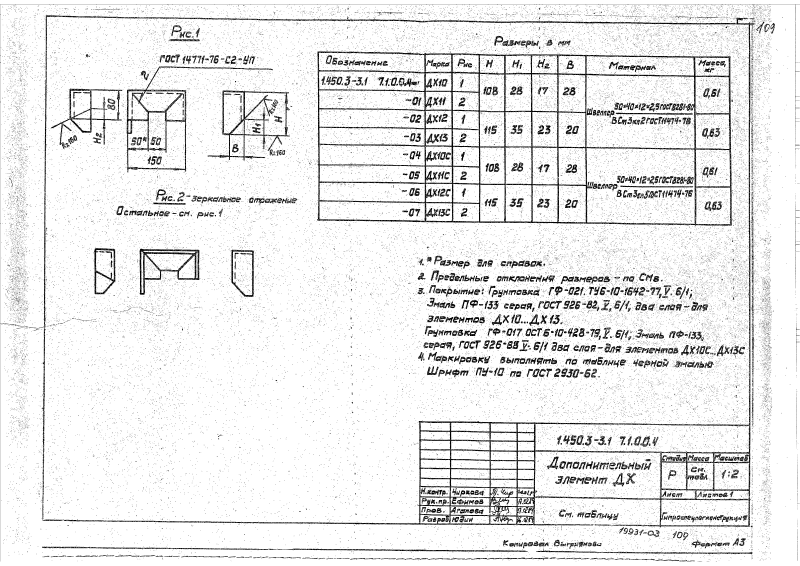 109
Рис.1
ГОСТ 14771-76-С2-УП
2
80
H₂
50*
50
150
Rz160
H₁
H
B
Rz160
Рис.2 - зеркальное отражение
Остальное - см. рис.1
Размеры, в мм
Обозначение Марка Рис H H₁ H₂ B Материал Масса, кг
1.450.3-3.1 7.1.0.0.4 ДХ10 1 108 28 17 28 Швеллер 50×40×12×2,5 ГОСТ 8281-80 0,61
-01 ДХ11 2 ВСт3кп2 ГОСТ 11474-76
-02 ДХ12 1 115 35 23 20 0,63
-03 ДХ13 2
-04 ДХ10С 1 108 28 17 28 Швеллер 50×40×12×2,5 ГОСТ 8281-80 0,61
-05 ДХ11С 2
-06 ДХ12С 1 115 35 23 20 0,63
-07 ДХ13С 2
1. * Размер для справок.
2. Предельные отклонения размеров - по СМ8.
3. Покрытие: Грунтовка ГФ-021. ТУ6-10-1642-77, V. б/1;
Эмаль ПФ-133 серая, ГОСТ 926-82, V, б/1, два слоя - для
элементов ДХ10...ДХ13.
Грунтовка ГФ-017 ОСТ 6-10-428-79, V. б/1; Эмаль ПФ-133,
серая, ГОСТ 926-88 V. б/1 два слоя - для элементов ДХ10С...ДХ13С
4. Маркировку выполнять по таблице черной эмалью
Шрифт ПУ-10 по ГОСТ 2930-62.
1.450.3-3.1 7.1.0.0.4
Дополнительный
элемент ДХ
Стадия Масса Масштаб
Р см. табл. 1:2
Лист Листов 1
Н.контр. Чиркова
Рук.пр. Ефимов
Пров. Агапова
Разраб. Юдин
См. таблицу
Гипроспецлегконструкция
19931-03 109
Копировал
Формат А3